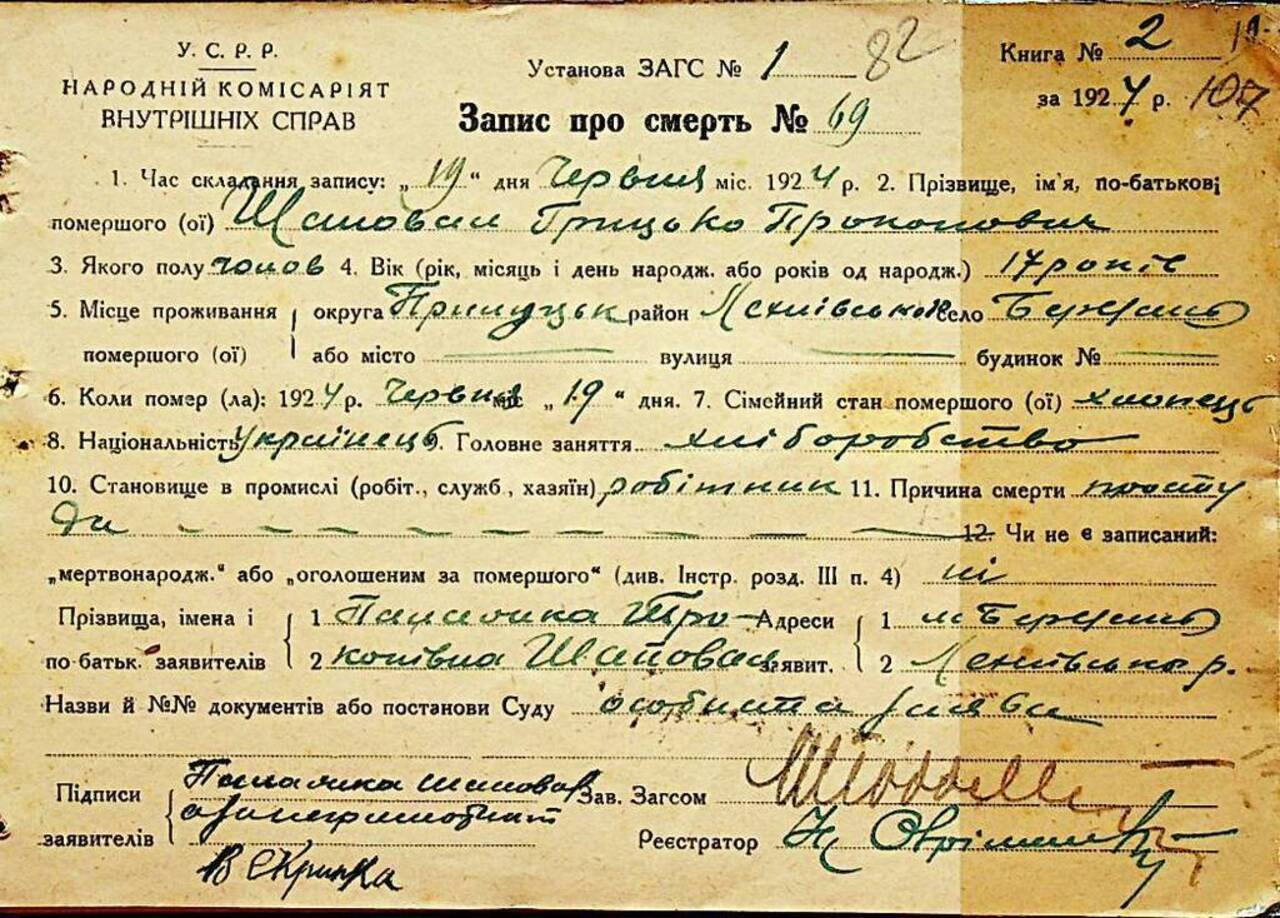 У. С. Р. Р.
НАРОДНІЙ КОМІСАРІЯТ
ВНУТРІШНІХ СПРАВ
Установа ЗАГС № 1 82
Книга № 2
за 1924 р. 107
Запис про смерть № 69
1. Час складання запису: „19“ дня Червня міс. 1924 р. 2. Прізвище, ім'я, по-батькові
помершого (ої) Шаповал Грицько Прокопович
3. Якого полу чолов 4. Вік (рік, місяць і день народж. або років од народж.) 17 років
5. Місце проживання округа Прилуцьк район село
помершого (ої) або місто — вулиця — будинок № —
6. Коли помер (ла): 1924 р. Червня міс „19“ дня. 7. Сімейний стан помершого (ої) хлопець
8. Національність Українець 9. Головне заняття хліборобство
10. Становище в промислі (робіт., служб., хазяїн) робітник 11. Причина смерти просту
да 12. Чи не є записаний:
„мертвонародж.“ або „оголошеним за помершого“ (див. Інстр. розд. III п. 4) ні
Прізвища, імена і 1 Адреси 1
по батьк. заявителів 2 Шаповал заявит. 2 р.
Назви й №№ документів або постанови Суду особиста заява
Підписи Шаповал Зав. Загсом
заявителів Реєстратор
В Скрипка